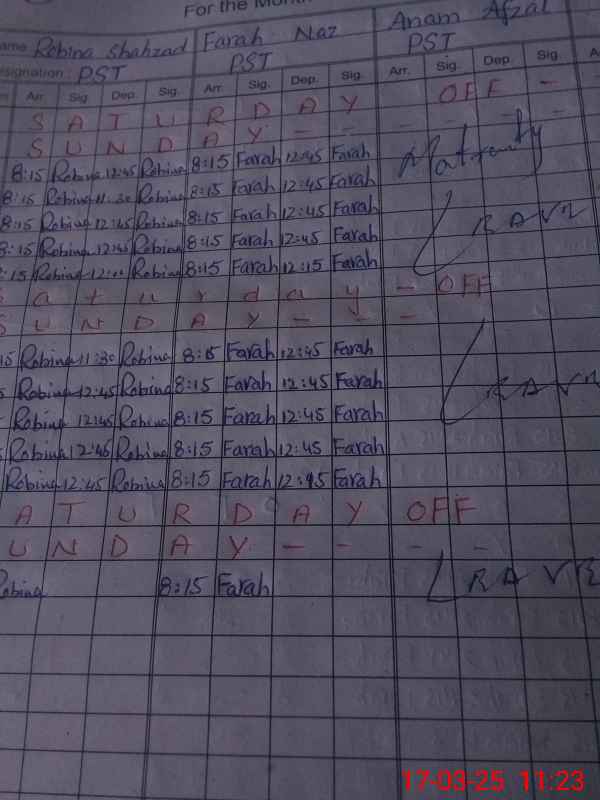 For the Mon
ame Robina Shahzad Farah Naz Anam Afzal
esignation: PST PST PST
Arr. Sig. Dep. Sig. Arr. Sig. Dep. Sig. Arr. Sig. Dep. Sig. A
S A T U R D A Y OFF -
S U N D A Y - - - - - -
8:15 Robina 12:45 Robina 8:15 Farah 12:45 Farah Matrenty
8:15 Robina 11:30 Robina 8:15 Farah 12:45 Farah
8:15 Robina 12:45 Robina 8:15 Farah 12:45 Farah LEAVE
8:15 Robina 12:45 Robina 8:15 Farah 12:45 Farah
:15 Robina Robina 8:15 Farah 12:15 Farah
S a t u r d a y - OFF
S U N D A Y - - -
15 Robina 11:30 Robina 8:15 Farah 12:45 Farah
5 Robina 12:45 Robina 8:15 Farah 12:45 Farah LEAVE
Robina 12:45 Robina 8:15 Farah 12:45 Farah
Robina 12:45 Robina 8:15 Farah 12:45 Farah
Robina 12:45 Robina 8:15 Farah 12:45 Farah
A T U R D A Y OFF
U N D A Y - - - -
Robina 8:15 Farah LEAVE
17-03-25 11:23